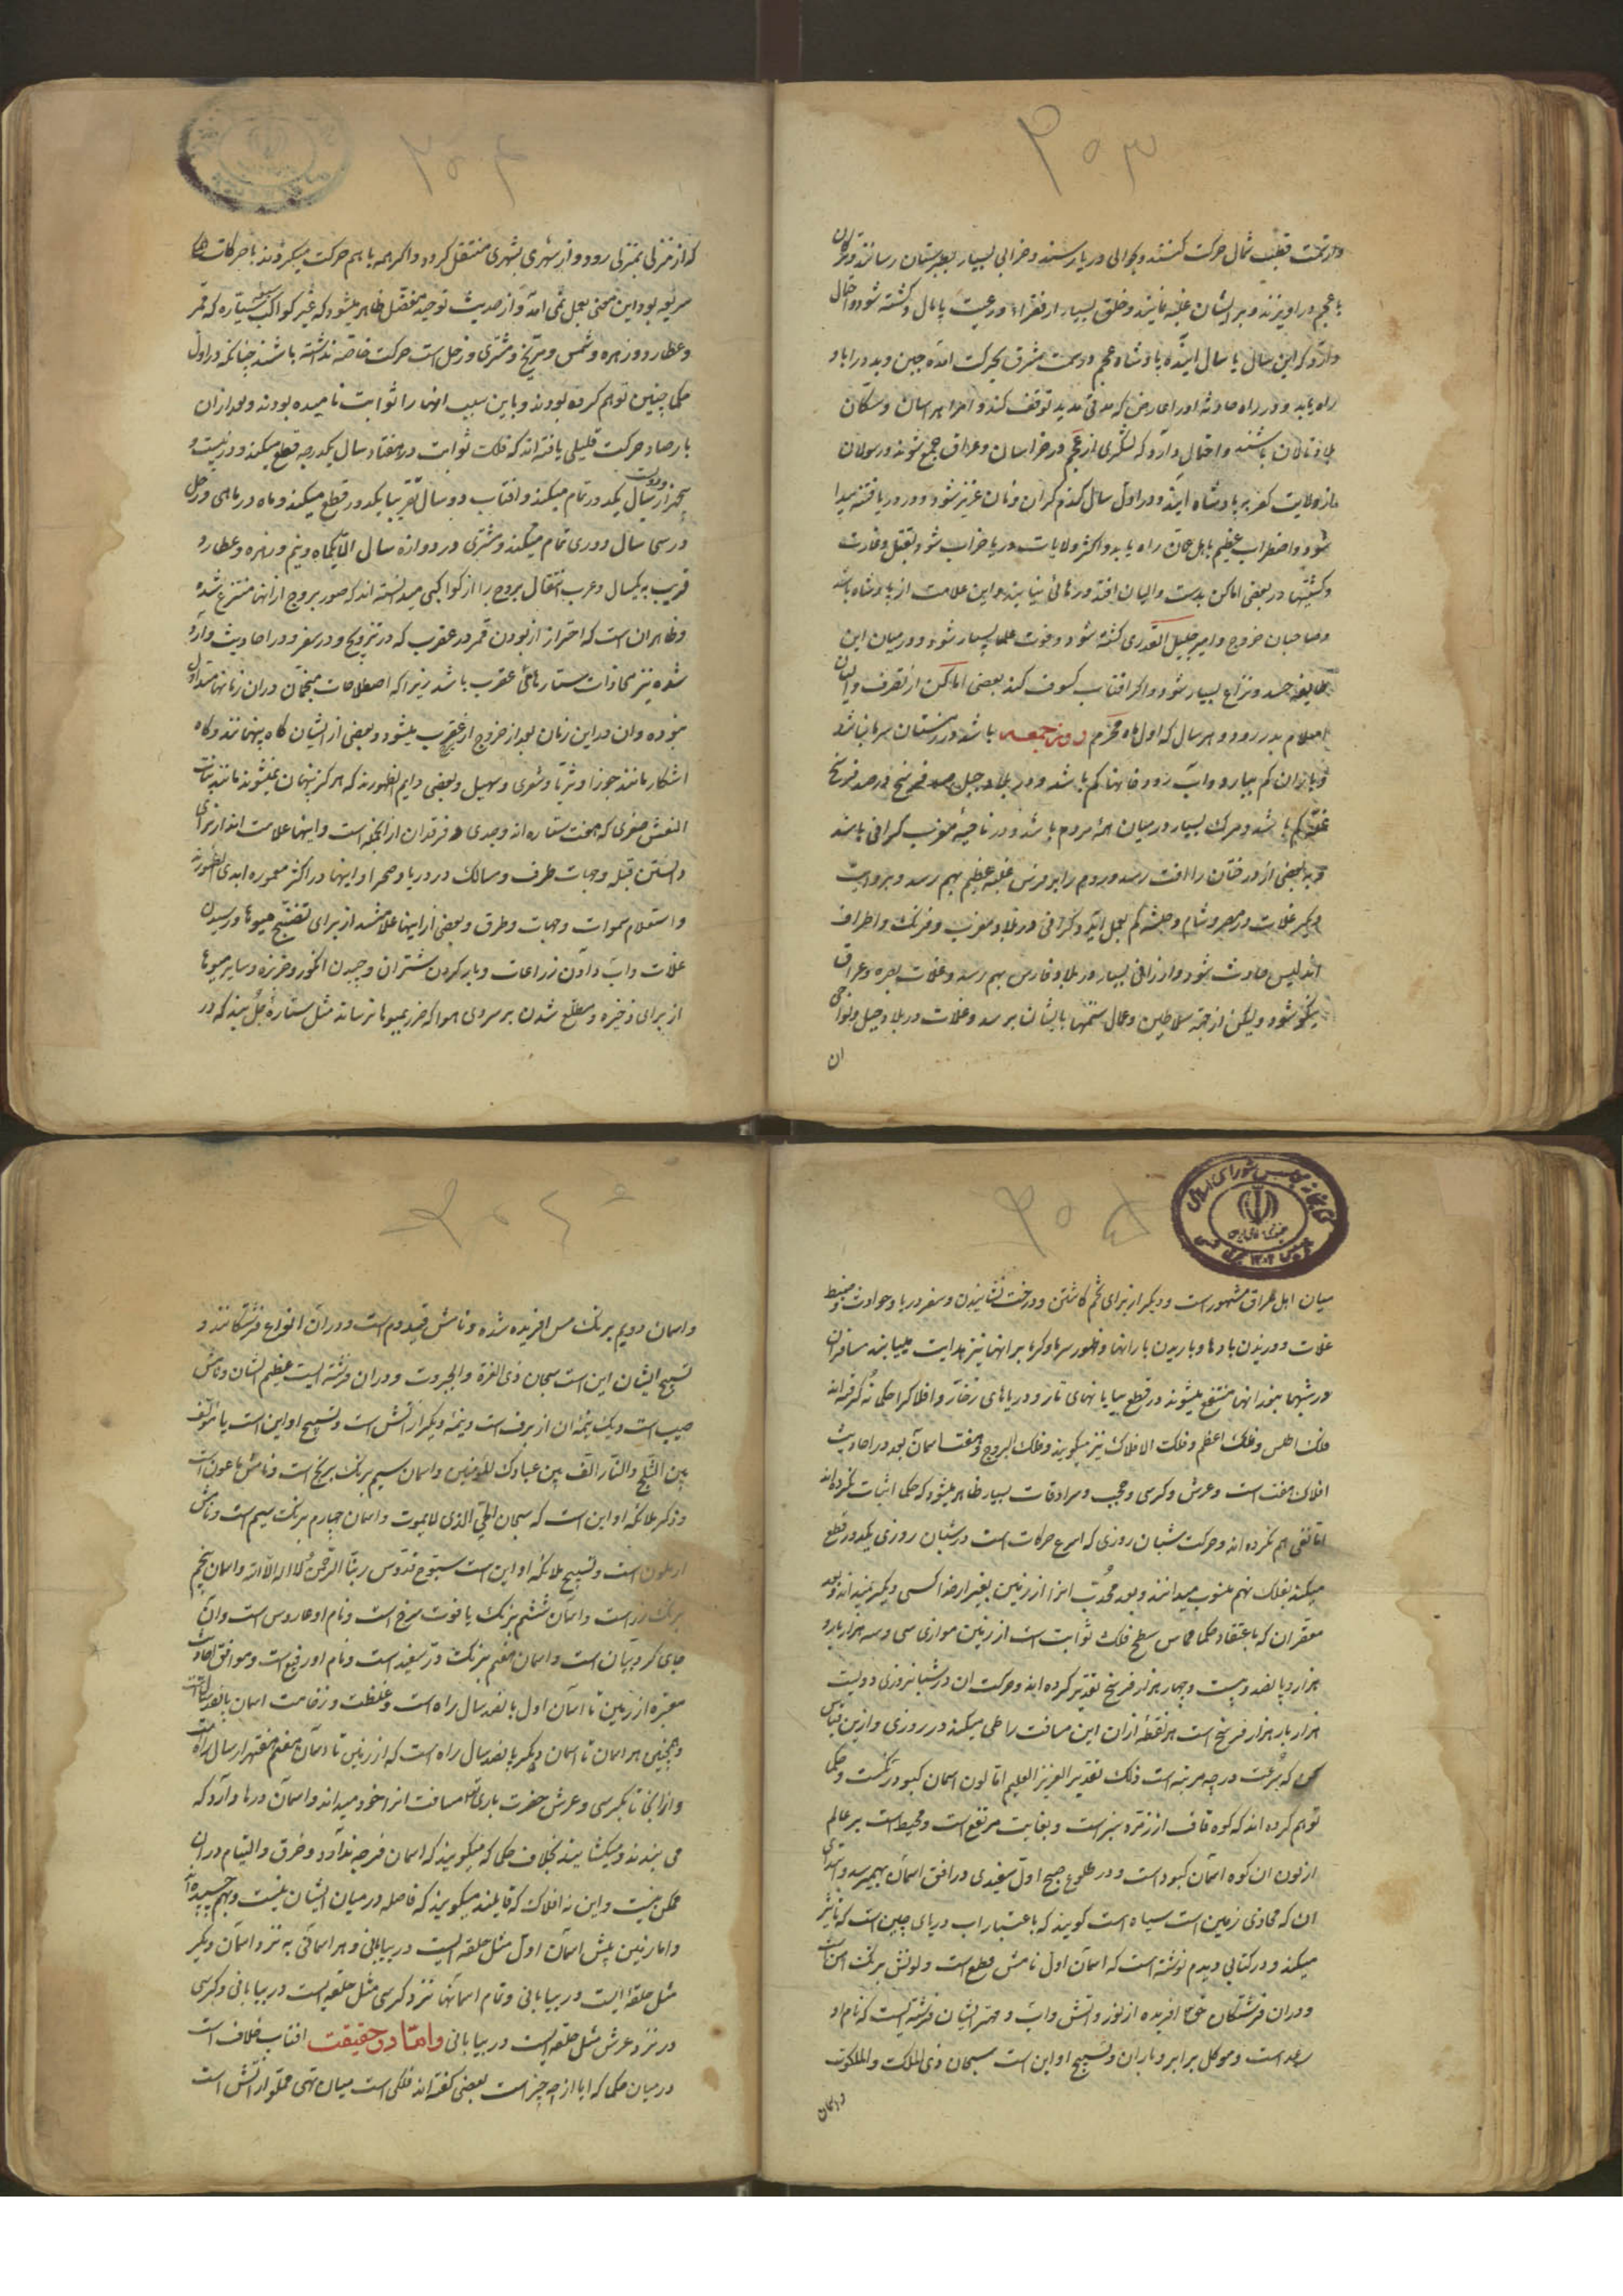 ۳۰۳
و از سمت قطب شمال حرکت کنند و بحوالی دریا رسند و خرابی بسیار بعربستان رسانند و ترکان
با عجم در آویزند و بر ایشان غلبه نمایند و خلق بسیار از فقراء و رعیت پامال و کشته شود و احتمال
دارد که این سال یا سال آینده پادشاه عجم از سمت مشرق بحرکت آمده
راه یابد و در راه حادثه او را عارض که مدتی مدید توقف کند و
باشند و احتمال دارد که لشکری از عجم در خراسان و عراق جمع شوند و رسولان
از ولایت کفر بر پادشاه آیند و در اول سال گندم گران و نان عزیز شود و در دریا فتنه پیدا
شود و اضطراب عظیم باهل جهان راه یابد و اکثر ولایات دریا خراب شود بقتل و غارت
و کشتیها در بعضی اماکن بدست والیان افتد و رهائی نیابند و این علامت از پادشاه باشد
و صاحبان خروج و امیر جلیل القدری کشته شود و فوت علما بسیار شود و در میان این
طایفه حسد و نزاع بسیار شود و اگر آفتاب کسوف کند بعضی اماکن از تصرف والیان
اسلام بدر رود و هر سال که اول ماه محرم روز جمعه باشد در زمستان سرما نباشد
و باران کم ببارد و آب رودخانها کم باشد و در بلاد جبل صد فرسخ در صد فرسخ
غله کم باشد و مرگ بسیار در میان همه مردم باشد و در ناحیهٔ مغرب گرانی باشد
و به بعضی از درختان را آفت رسد و روم را بر فرس غلبهٔ عظیم بهم رسد و بروایت
دیگر غلات در مصر و شام و حبشه کم بعمل آید و گرانی در بلاد مغرب و فرنگ و اطراف
اندلس حادث شود و ارزانی بسیار در بلاد فارس بهم رسد و غلات بصره و عراق
نیکو شود و لیکن از جهة سلاطین و عمال ستمها بایشان برسد و غلات در بلاد جبل و نواحی
ان
۳۰۴
که از منزلی بمنزلی رود و از شهری بشهری منتقل گردد و اگر همه با هم حرکت میکردند با حرکات
سریعه بود این معنی بعمل نمی آمد و از حدیث توحید مفضل ظاهر میشود که غیر کواکب سبعه سیاره که قمر
و عطارد و زهره و شمس و مریخ و مشتری و زحل است حرکت خاصه نداشته باشند چنانکه در اول
حکما چنین توهم کرده بودند و باین سبب آنها را ثوابت نامیده بودند و بعد از آن
بارصاد حرکت قلیلی یافته اند که فلک ثوابت در هفتاد سال یکدرجه قطع میکند و در بیست و
پنجهزار و دویست سال یکدور تمام میکند و آفتاب در سال تقریبا یکدور قطع میکند و ماه در ماهی و زحل
در سی سال دوری تمام میکند و مشتری در دوازده سال الا یکماه و نیم و زهره و عطارد
قریب به یکسال و عرب انتقال بروج را از کواکبی میدانسته اند که صور بروج از آنها منتزع شده
و ظاهر آن است که احتراز از بودن قمر در عقرب که در تزویج و در سفر و در احادیث وارد
شده نیز محاذات ستارهای عقرب باشد زیرا که اصطلاحات منجمان در آن زمانها متداول
نبوده و آن در این زمان بعد از خروج از عقرب میشود و بعضی از ایشان گاه پنهانند و گاه
آشکار مانند جوزا و ثریا و شعری و سهیل و بعضی دایم الظهورند که هرگز پنهان نمیشوند مانند بنات
النعش صغری که هفت ستاره اند و جدی و فرقدان از آنجمله است و اینها علامت اند از برای
دانستن قبله و جهات طرف و مسالک در دریا و صحرا و اینها در اکثر معموره ابدی الظهورند
و استعلام سموات و جهات و طرق و بعضی از اینها علامتند از برای نضج میوها و رسیدن
غلات و آب دادن زراعات و بار کردن شتران و چیدن انگور و خربزه و سایر میوها
از برای ذخیره و مطلع شدن بر سردی هوا که ضرر بمیوها نرساند مثل ستارهٔ که در
۳۰۵
میان اهل عراق مشهور است و دیگر از برای تخم کاشتن و درخت نشانیدن و سفر دریا و حوادث و ضبط
غلات و وزیدن بادها و باریدن بارانها و ظهور سرما و گرما بر آنها نیز هدایت مییابند مسافران
در شبها بنور آنها منتفع میشوند در قطع بیابانهای تار و دریاهای زخار و افلاک را حکما نُه گرفته اند
فلک اطلس و فلک اعظم و فلک الافلاک نیز میگویند و فلک البروج و هفت آسمان بعد در احادیث
افلاک هفت است و عرش و کرسی و حجب و سرادقات بسیار ظاهر میشود که حکما اثبات نکرده اند
اما نفی هم نکرده اند و حرکت شبان روزی که اسرع حرکات است در شبان روزی یکدور قطع
میکند بفلک نهم منسوب میدانند و بعد محدب آنرا از زمین بغیر از خدا کسی دیگر نمیداند و بعد
مقعر آن که باعتقاد حکما مماس سطح فلک ثوابت است از زمین موازی سی و سه هزار بار و
هزار و پانصد و بیست و چهار هزار فرسخ تقدیر کرده اند و حرکت آن در شبانروزی دویست
هزار بار هزار فرسخ است هر نقطهٔ از آن این مسافت را طی میکند در روزی و از این قیاس
کن که سرعت در چه مرتبه است ذلک تقدیر العزیز العلیم اما لون آسمان کبود رنگست و حکما
توهم کرده اند که کوه قاف از زمرد سبز است و بغایت مرتفع است و محیط است بر عالم
از لون آن کوه آسمان کبود است و در طلوع صبح اول سفیدی در افق آسمان بهم میرسد و ابتدای
آن که محاذی زمین است سیاه است گویند که باعتبار آب دریای چین است که تأثیر
میکند و در کتابی دیدم نوشته است که آسمان اول نامش قطع است و لونش برنگ آهن است
و در آن فرشتگان حق تعالی آفریده از نور و آتش و آب و مهتر ایشان فرشته ایست که نام او
رعد است و موکل بر ابر و باران و تسبیح او این است سبحان ذی الملک و الملکوت
و آسمان
۳۰۶
و آسمان دویم برنگ مس آفریده شده و نامش قیدوم است و در آن انواع فرشتگانند و
تسبیح ایشان این است سبحان ذی العزة و الجبروت و در آن فرشته ایست عظیم الشان و نامش
حبیب است و یک نیمهٔ آن از برف است و نیمهٔ دیگر از آتش است و تسبیح او این است یا مؤلف
بین الثلج و النار الف بین عبادک المؤمنین و آسمان سیم برنگ برنج است و نامش ماعون است
و ذکر ملائکه او این است که سبحان الحی الذی لا یموت و آسمان چهارم برنگ سیم است و نامش
ارملون است و تسبیح ملائکه او این است سبوح قدوس ربنا الرحمن لا اله الا الله و آسمان پنجم
برنگ زر است و آسمان ششم برنگ یاقوت سرخ است و نام او عاروس است و آن
جای کروبیان است و آسمان هفتم برنگ در سفید است و نام او رقیع است و موافق احادیث
معتبره از زمین تا آسمان اول پانصد سال راه است و غلظت و زخامت آسمان پانصد سال است
و همچنین هر آسمان تا آسمان دیگر پانصد سال راه است که از زمین تا آسمان هفتم هفتهزار سال راه است
و از آنجا تا بکرسی و عرش حضرت باری تعالی مسافت آنرا خود میداند و آسمان درها دارد که
می بندند و میگشایند بخلاف حکما که میگویند که آسمان فرجه ندارد و خرق و التیام در آن
ممکن نیست و این نه افلاک که قایلند میگویند که فاصله در میان ایشان نیست و بهم چسبیده اند
و اما زمین پیش آسمان اول مثل حلقه ایست در بیابانی و هر آسمانی به نزد آسمان دیگر
مثل حلقه ایست در بیابانی و تمام آسمانها نزد کرسی مثل حلقه ایست در بیابانی و کرسی
در نزد عرش مثل حلقه ایست در بیابانی و اما در حقیقت آفتاب خلاف است
در میان حکما که آیا از چه چیز است بعضی گفته اند فلکی است میان تهی مملو از آتش است